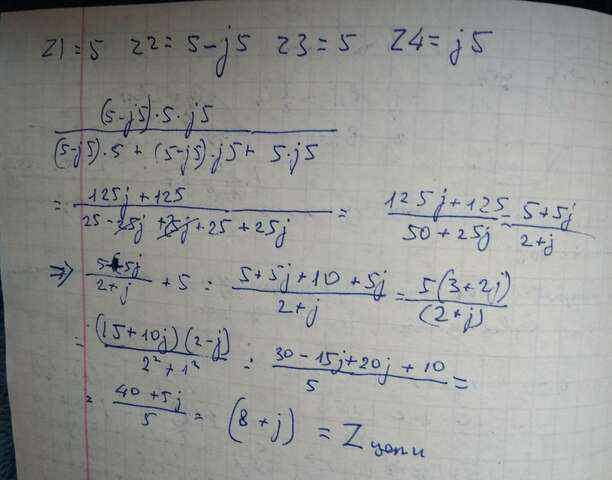 Z1 = 5 Z2 = 5 - j5 Z3 = 5 Z4 = j5
(5-j5)·5·j5 / (5-j5)·5 + (5-j5)·j5 + 5·j5
= 125j + 125 / 25 - 25j + 25j + 25 + 25j = 125j + 125 / 50 + 25j = 5 + 5j / 2 + j
=> 5 + 5j / 2 + j + 5 = 5 + 5j + 10 + 5j / 2 + j = 5(3 + 2j) / (2 + j)
= (15 + 10j)(2 - j) / 2² + 1² = 30 - 15j + 20j + 10 / 5 =
= 40 + 5j / 5 = (8 + j) = Z цепи